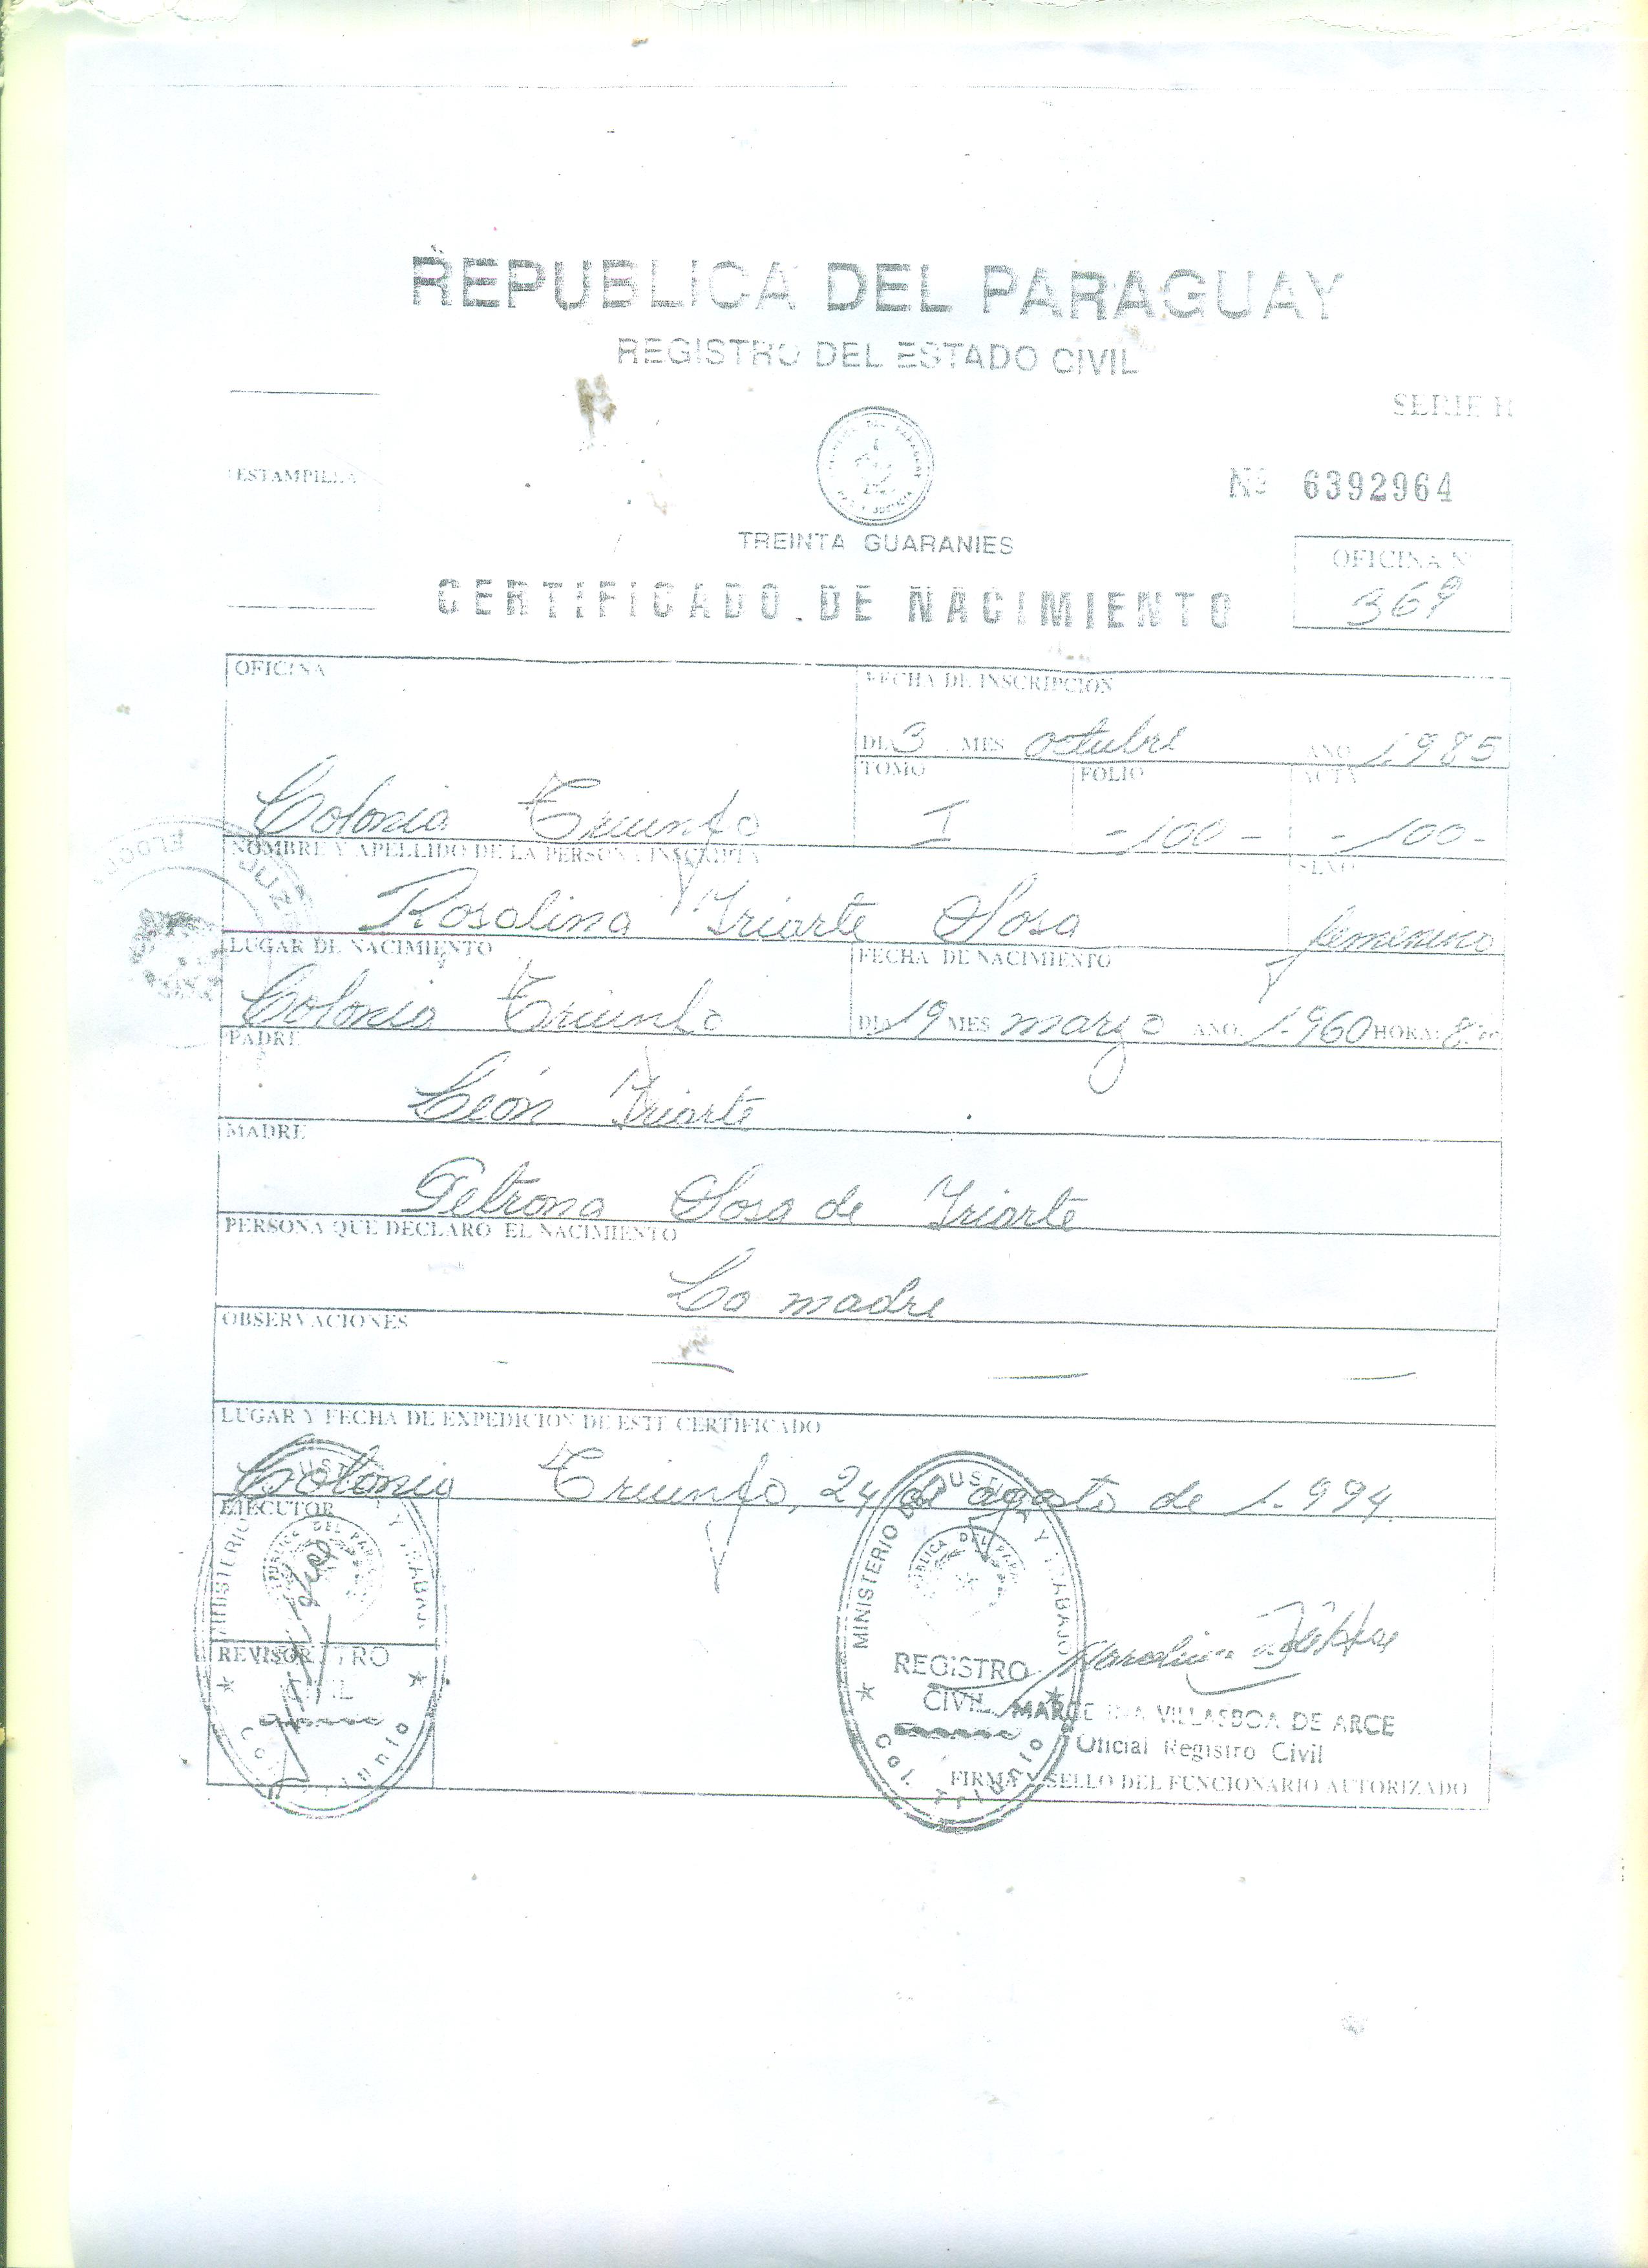 REPUBLICA DEL PARAGUAY
REGISTRO DEL ESTADO CIVIL
SERIE
ESTAMPILLA
Nº 6392964
TREINTA GUARANIES
OFICINA Nº
369
CERTIFICADO DE NACIMIENTO
OFICINA
FECHA DE INSCRIPCION
DIA 3 MES octubre AÑO 1.985
TOMO FOLIO ACTA
Colonia Triunfo I -100- -100-
NOMBRE Y APELLIDO DE LA PERSONA INSCRIPTA SEXO
Rosalina Yriarte Sosa femenino
LUGAR DE NACIMIENTO FECHA DE NACIMIENTO
Colonia Triunfo DIA 19 MES marzo AÑO. 1.960 HORA: 8:00
PADRE
León Yriarte
MADRE
Petrona Sosa de Yriarte
PERSONA QUE DECLARO EL NACIMIENTO
La madre
OBSERVACIONES
LUGAR Y FECHA DE EXPEDICION DE ESTE CERTIFICADO
Colonia Triunfo, 24 de agosto de 1.994
EJECUTOR
MINISTERIO DE JUSTICIA Y TRABAJO
REVISOR
REGISTRO
CIVIL
MARCELINA VILLASBOA DE ARCE
Oficial Registro Civil
FIRMA Y SELLO DEL FUNCIONARIO AUTORIZADO